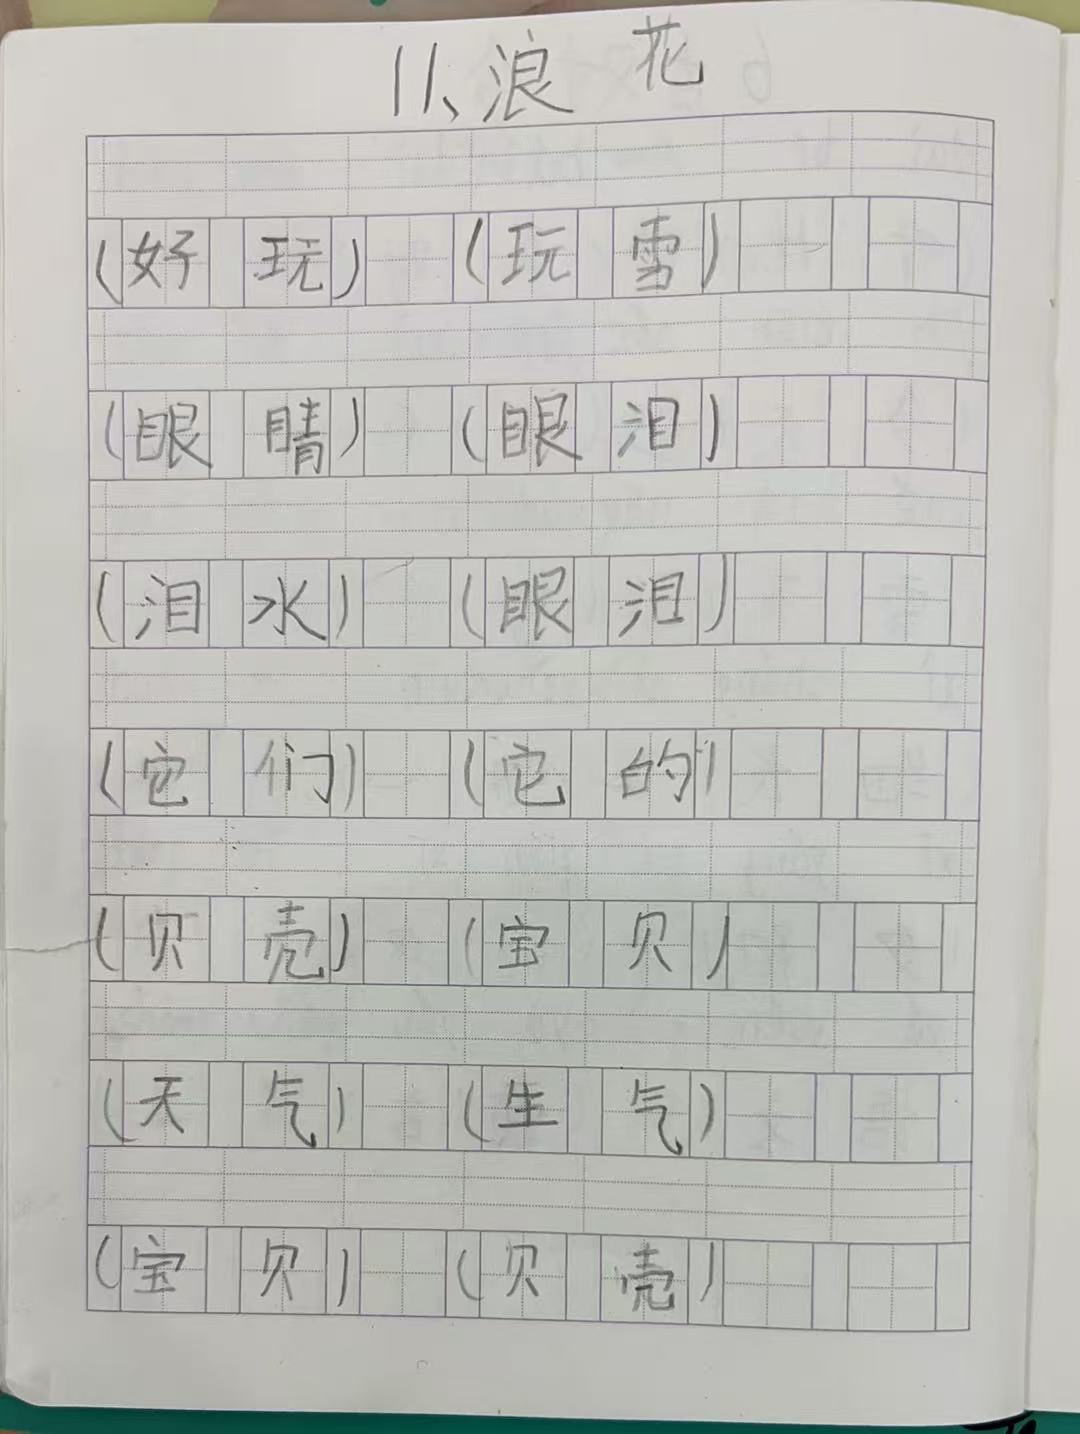 11、浪花
(好玩) (玩雪)
(眼睛) (眼泪)
(泪水) (眼泪)
(它们) (它的)
(贝壳) (宝贝)
(天气) (生气)
(宝贝) (贝壳)